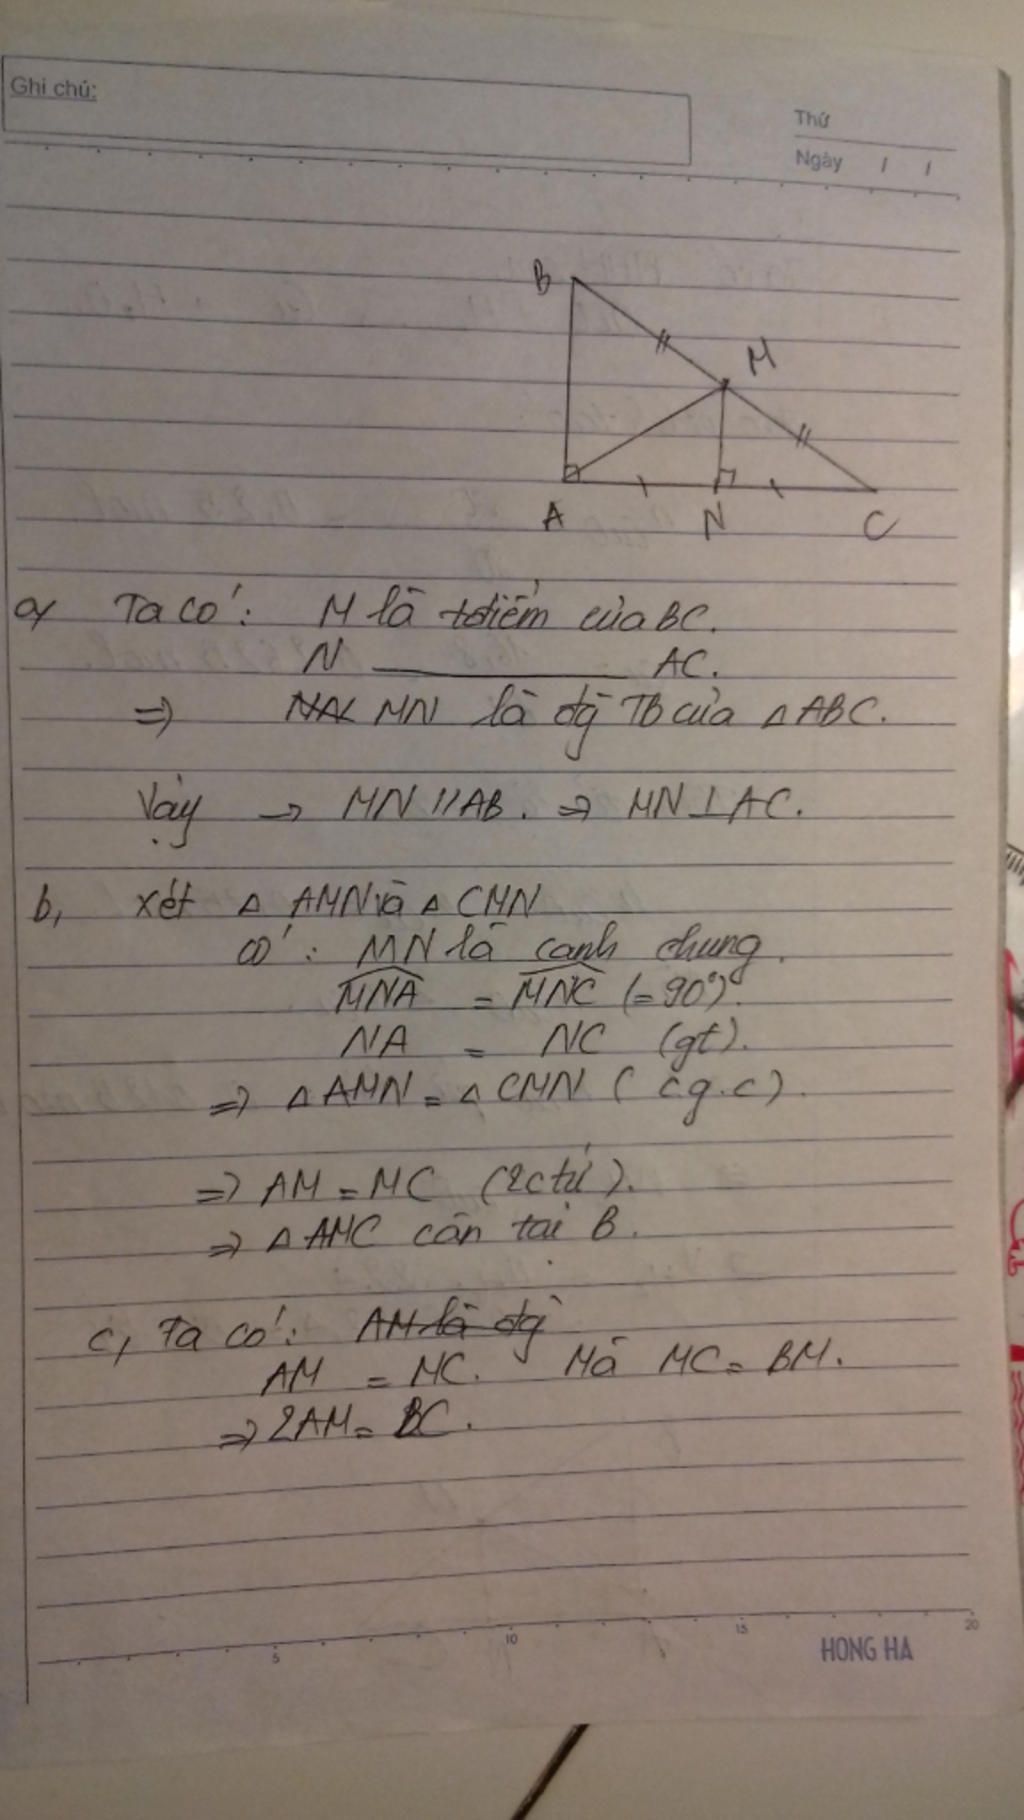 Ghi chú:
Thứ
Ngày / /
B
M
A
N
C
a, Ta có: M là tđiểm của BC.
N ——— AC.
=> MN là đg TB của △ ABC.
Vậy → MN // AB. => MN ⊥ AC.
b, xét △ AMN và △ CMN
có: MN là cạnh chung.
MNA = MNC (= 90°).
NA = NC (gt).
=> △ AMN = △ CMN ( c.g.c ).
=> AM = MC (2ctứ).
=> △ AMC cân tại B.
c, Ta có: AM là đg
AM = MC. Mà MC = BM.
=> 2AM = BC.
5 10 15 20
HONG HA